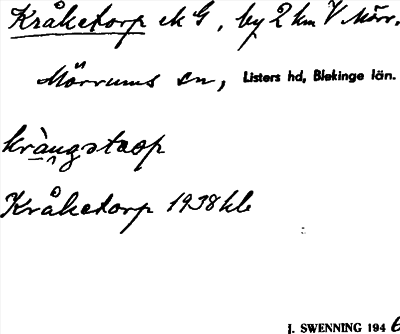 Kråketorp ek G, by 2 km V Mörr.
Mörrums sn, Listers hd, Blekinge län.
kràngstaop
Kråketorp 1938 kb
J. SWENNING 1946